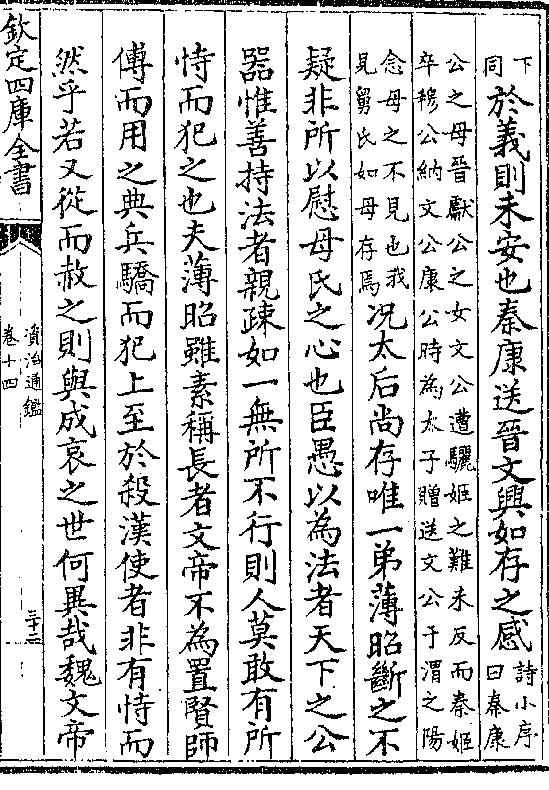 下同於義則未安也秦康送晉文興如存之感詩小序曰秦康
公之母晉獻公之女文公遭驪姬之難未反而秦姬
卒穆公納文公康公時為太子贈送文公于渭之陽
念母之不見也我見舅氏如母存焉况太后尚存唯一弟薄昭斷之不
疑非所以慰母氏之心也臣愚以為法者天下之公
器惟善持法者親疎如一無所不行則人莫敢有所
恃而犯之也夫薄昭雖素稱長者文帝不為置賢師
傅而用之典兵驕而犯上至於殺漢使者非有恃而
然乎若又從而赦之則與成哀之世何異哉魏文帝
欽定四庫全書
資治通鑑
卷十四
三十二